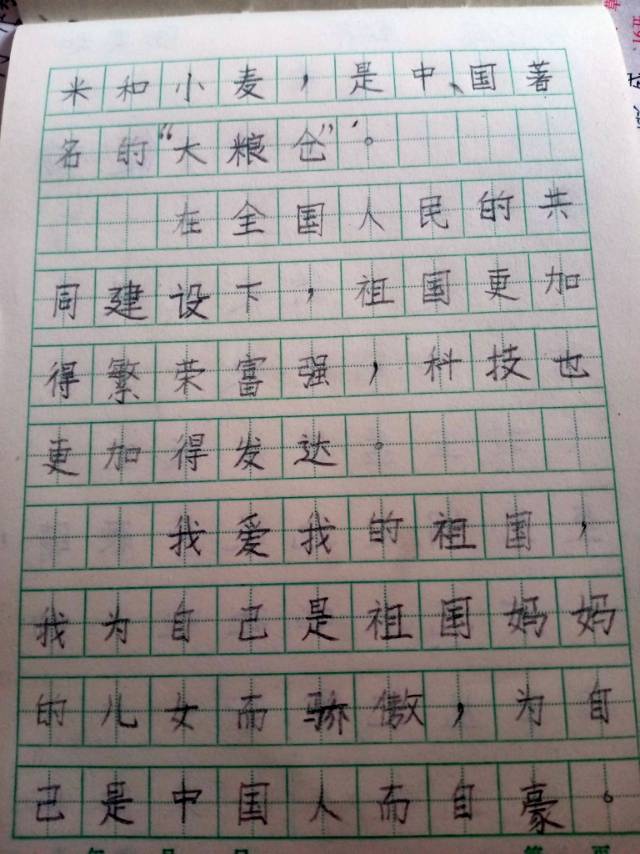 米和小麦，是中、国著
名的“大粮仓”。
在全国人民的共
同建设下，祖国更加
得繁荣富强，科技也
更加得发达。
我爱我的祖国，
我为自己是祖国妈妈
的儿女而骄傲，为自
己是中国人而自豪。